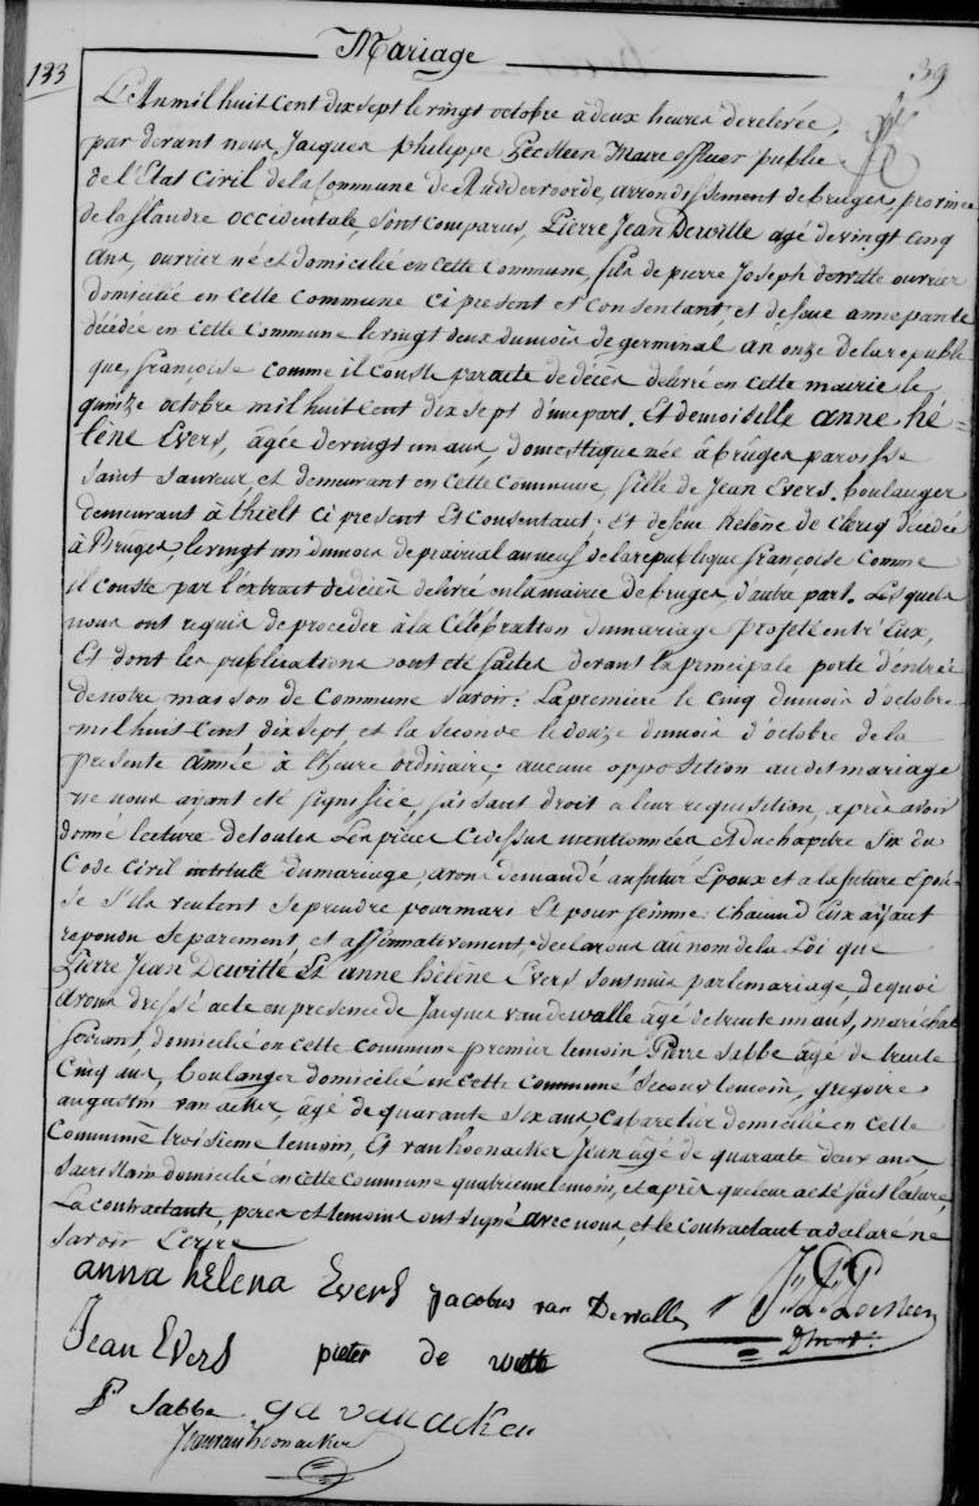 Mariage
133
39
L'An mil huit Cent dix sept le vingt octobre à deux heures de relevée,
par devant nous, Jacques philippe Zeesteen Maire officier public
de l'Etat Civil de la Commune de Ruddervoorde, arrondissement de bruges, province
de la flandre occidentale, sont comparus, Pierre Jean Dewitte agé de vingt cinq
ans, ouvrier né et domicilié en cette commune, fils de pierre Joseph dewitte ouvrier
domicilié en cette commune ci present et consentant, et de feue anne pante
décédée en cette commune le vingt deux du mois de germinal an onze de la republi
que françoise comme il conste par acte de décès delivré en cette mairie le
quinze octobre mil huit cent dix sept d'une part. Et demoiselle anne hé=
lène Evers, âgée de vingt un ans, domestique née à brûges paroisse
Saint Sauveur, et demeurant en cette Commune, fille de Jean Evers. boulanger
demeurant à thielt ci present Et consentant; Et de feue helène de Clerq décédée
à Bruges, le vingt un du mois de prairial an neuf de la republique françoise Comme
il conste par l'extrait de décès delivré en la mairie de bruges, d'autre part. Lesquels
nous ont requis de proceder à la Célébration du mariage projetté entr'Eux,
Et dont les publications ont eté faites devant la principale porte d'entrée
de notre maison de Commune Savoir: La premiere le cinq du mois d'octobre
mil huit Cent dix sept et la seconde le douze du mois d'octobre de la
presente année à l'heure ordinaire; aucune opposition au dit mariage
ne nous ayant eté signifiée, faisant droit a leur requisition, après avoir
donné lecture de toutes Les pièces Cidessus mentionnées et du chapitre Six du
Code Civil intitulé du mariage, avons demandé au futur Epoux et a la future Epou=
se s'ils veulent se prendre pour mari Et pour femme: chacun d'Eux ayant
repondu Separement, et affirmativement, declarons au nom de la Loi que
Pierre Jean Dewitté Et anne hèlène Evers sont unis par le mariage, de quoi
avons dressé acte en presence de Jacques vandewalle âgé de trente un ans, maréchal
ferrant, domicilié en cette commune premier temoin Pierre Sabbe âgé de trente
Cinq ans, boulanger domicilié en cette commune Second temoin, gregoire
augustin van acker, âgé de quarante Six ans Cabaretier domicilié en cette
Commune troisieme temoin, Et vanhoonacker Jean âgé de quarante deux ans
Sacristain domicilié en cette commune quatrieme temoin, et après que leur a eté fait lecture,
La contractante, peres et temoins ont signé avec nous, et le contractant a declaré ne
Savoir Ecrire
anna hElena Evers Jacobus van Dewalle
Jean Evers pieter de witte
P Sabbe ga van acker
Jean van hoonacker